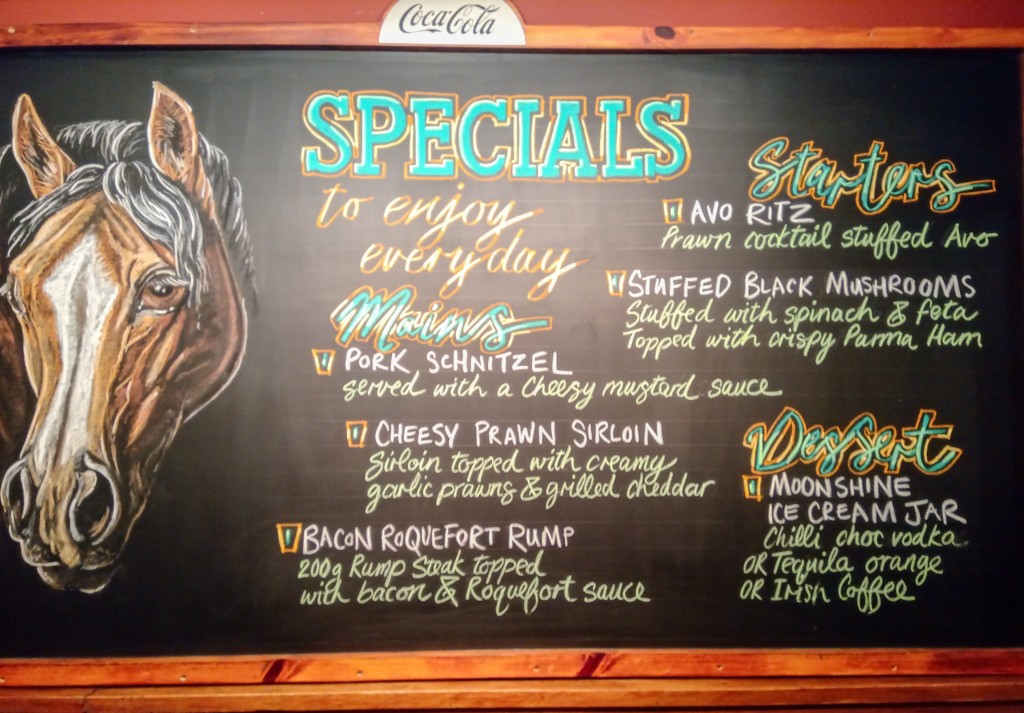 Coca-Cola
SPECIALS
to enjoy
everyday
Mains
PORK SCHNITZEL
served with a cheesy mustard sauce
CHEESY PRAWN SIRLOIN
Sirloin topped with creamy
garlic prawns & grilled cheddar
BACON ROQUEFORT RUMP
200g Rump Steak topped
with bacon & Roquefort sauce
Starters
AVO RITZ
Prawn cocktail stuffed Avo
STUFFED BLACK MUSHROOMS
Stuffed with spinach & feta
Topped with crispy Parma Ham
Dessert
MOONSHINE
ICE CREAM JAR
Chilli choc vodka
OR Tequila orange
OR Irish Coffee